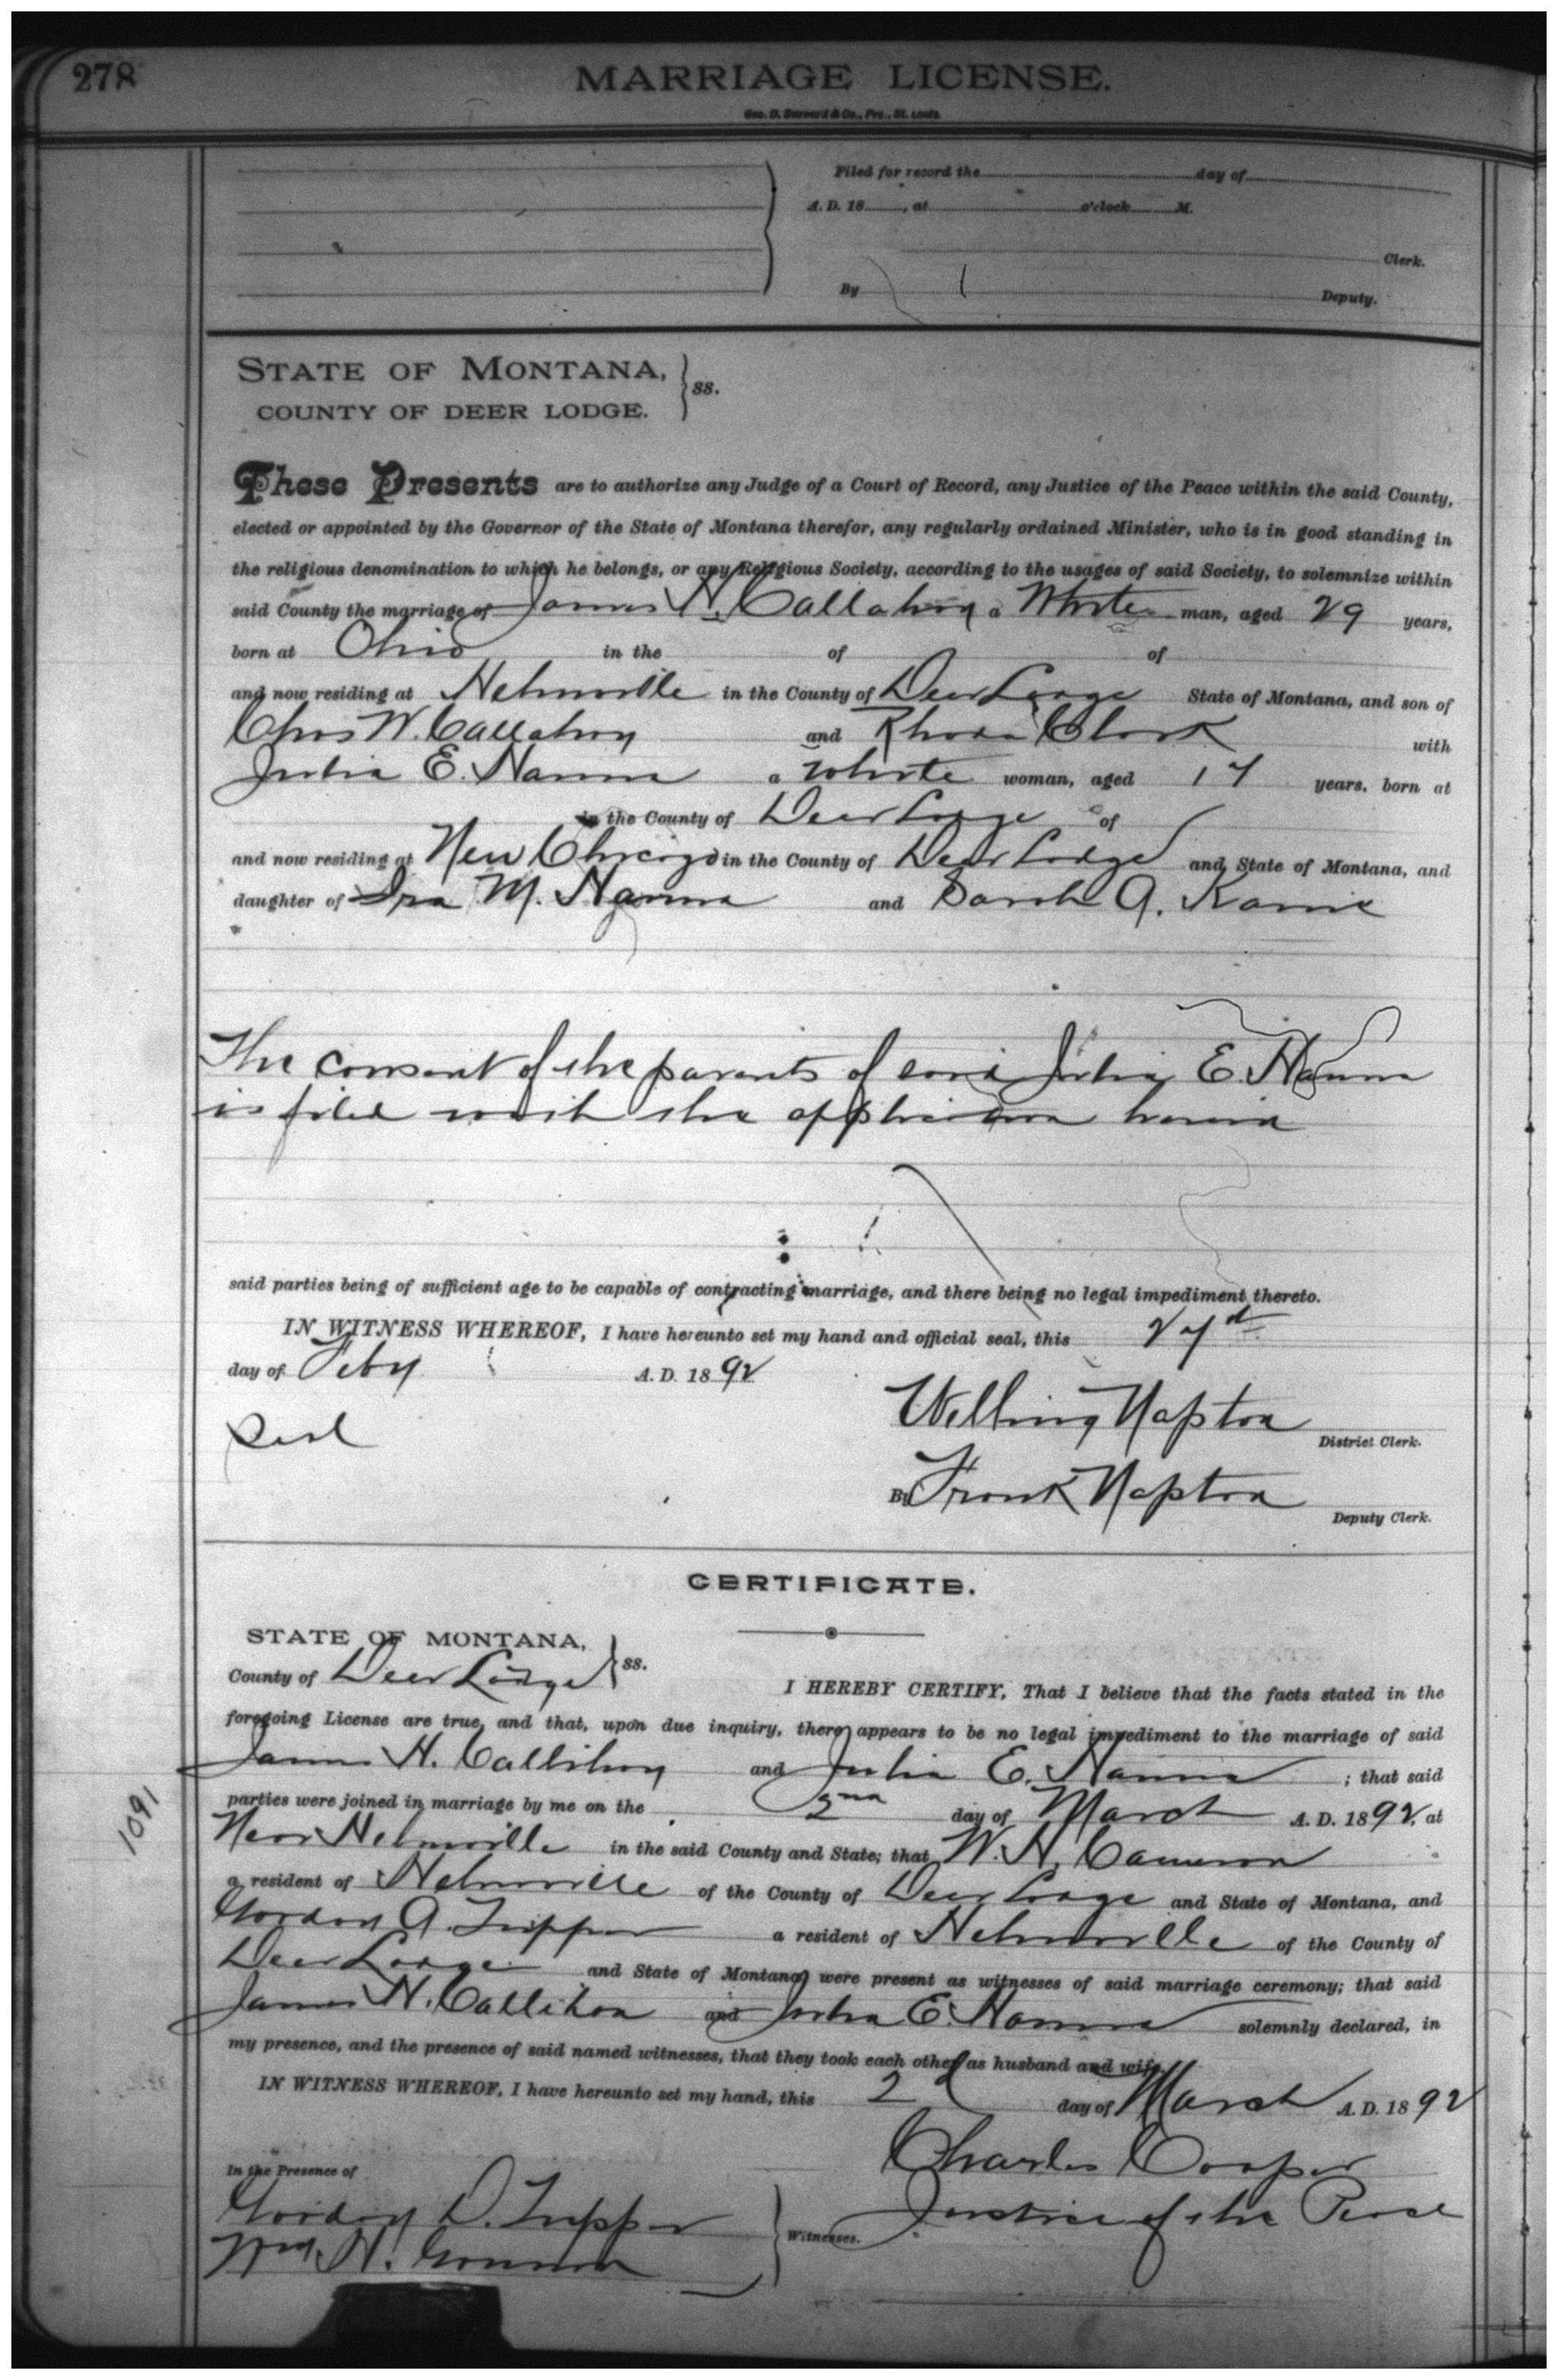 278
MARRIAGE LICENSE.
Geo. D. Barnard & Co., Prs., St. Louis.
Filed for record the day of
A. D. 18 , at o'clock M.
Clerk.
By Deputy.
STATE OF MONTANA,
COUNTY OF DEER LODGE. } ss.
These Presents are to authorize any Judge of a Court of Record, any Justice of the Peace within the said County,
elected or appointed by the Governor of the State of Montana therefor, any regularly ordained Minister, who is in good standing in
the religious denomination to which he belongs, or any Religious Society, according to the usages of said Society, to solemnize within
said County the marriage of James H. Callahan a White man, aged 29 years,
born at Ohio in the of of
and now residing at Helmville in the County of Deer Lodge State of Montana, and son of
Chas W. Callahan and Rhoda Clark with
Julia E. Hanna a White woman, aged 17 years, born at
in the County of Deer Lodge of
and now residing at New Chicago in the County of Deer Lodge and State of Montana, and
daughter of Ira M. Hanna and Sarah A.
The consent of the parents of said Julia E. Hanna
is filed with the application herein
said parties being of sufficient age to be capable of contracting marriage, and there being no legal impediment thereto.
IN WITNESS WHEREOF, I have hereunto set my hand and official seal, this 27th
day of Feby A. D. 18 92
Seal
Welling Napton
District Clerk.
By Frank Napton
Deputy Clerk.
CERTIFICATE.
STATE OF MONTANA,
County of Deer Lodge } ss.
I HEREBY CERTIFY, That I believe that the facts stated in the
foregoing License are true, and that, upon due inquiry, there appears to be no legal impediment to the marriage of said
James H. Callihan and Julia E. Hanna ; that said
parties were joined in marriage by me on the 2nd day of March A. D. 18 92, at
Near Helmville in the said County and State; that W. H. Cameron
a resident of Helmville of the County of Deer Lodge and State of Montana, and
Gordon A. Tripper a resident of Helmville of the County of
Deer Lodge and State of Montana, were present as witnesses of said marriage ceremony; that said
James H. Callihan and Julia E. Hanna solemnly declared, in
my presence, and the presence of said named witnesses, that they took each other as husband and wife.
IN WITNESS WHEREOF, I have hereunto set my hand, this 2d day of March A. D. 18 92
Charles Cooper
Justice of the Peace
In the Presence of
Gordon D. Tripper
Wm. H.
Witnesses.
1091